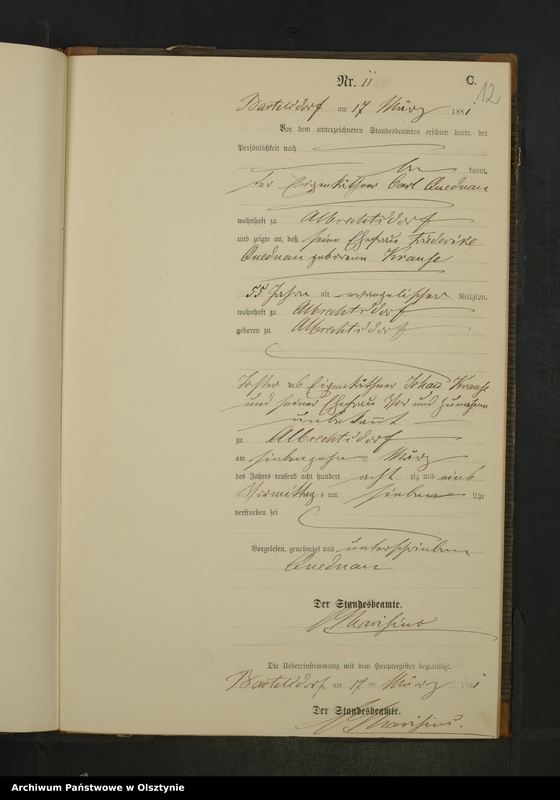 Nr. 11
C.
12
Bartelsdorf am 17 März 1881
Vor dem unterzeichneten Standesbeamten erschien heute, der
Persönlichkeit nach
kannt,
der Eigenkäthner Carl Quednau
wohnhaft zu Albrechtsdorf
und zeigte an, daß seine Ehefrau Friederike
Quednau geborene Krause
55 Jahre alt evangelischer Religion,
wohnhaft zu Albrechtsdorf
geboren zu Albrechtsdorf
Tochter des Eigenkäthner Johann Krause
und seiner Ehefrau Vor und Zunahme
unbekannt
zu Albrechtsdorf
am siebenzehn März
des Jahres tausend acht hundert achtzig und eins
Vormittags um sieben Uhr
verstorben sei
Vorgelesen, genehmigt und unterschrieben
Quednau
Der Standesbeamte.
Die Uebereinstimmung mit dem Hauptregister beglaubigt.
Bartelsdorf am 17 ten März 1881
Der Standesbeamte.
Archiwum Państwowe w Olsztynie